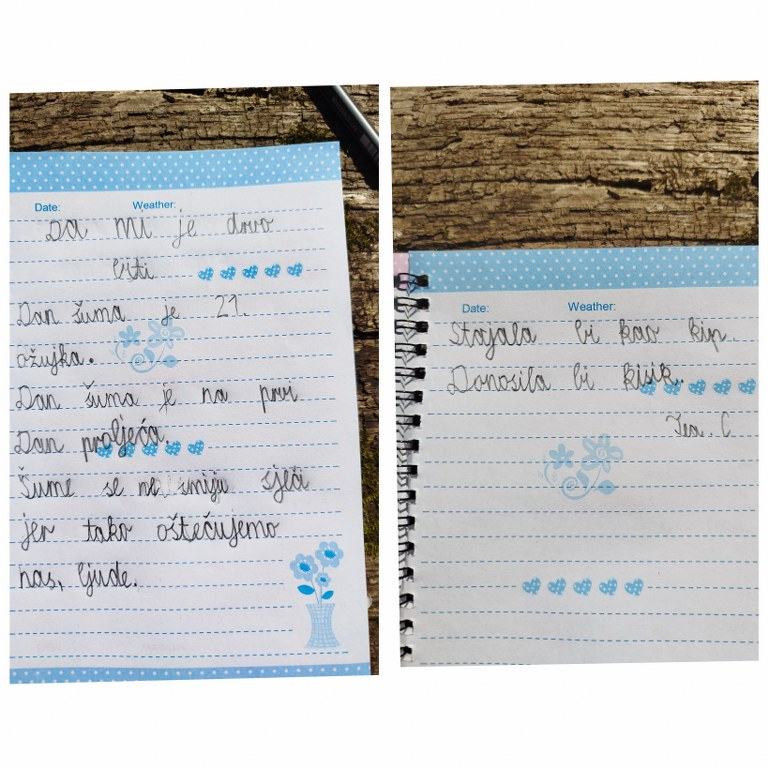 Date: Weather:
Da mi je drvo
biti
Dan šuma je 21.
ožujka.
Dan šuma je na prvi
Dan proljeća.
Šume se ne smiju sjeći
jer tako oštećujemo
nas, ljude.
Date: Weather:
Stajala bi kao kip.
Donosila bi kisik.
Tea. C